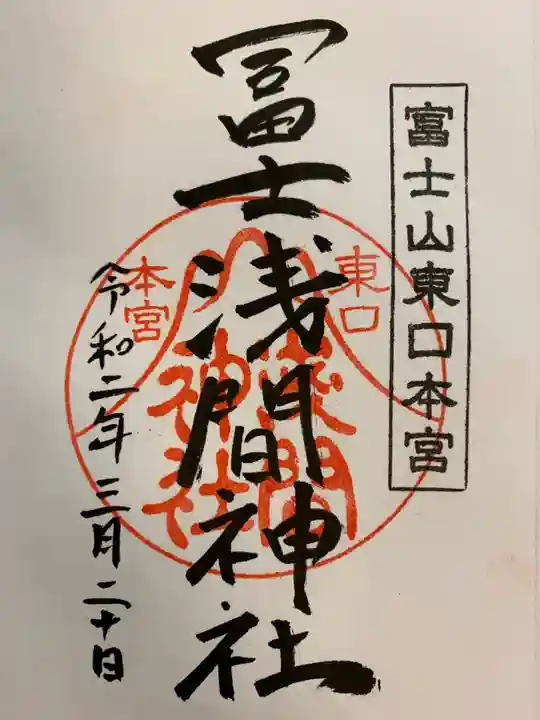 富士山東口本宮
冨士浅間神社
東口
本宮
浅間
神社
令和二年三月二十日